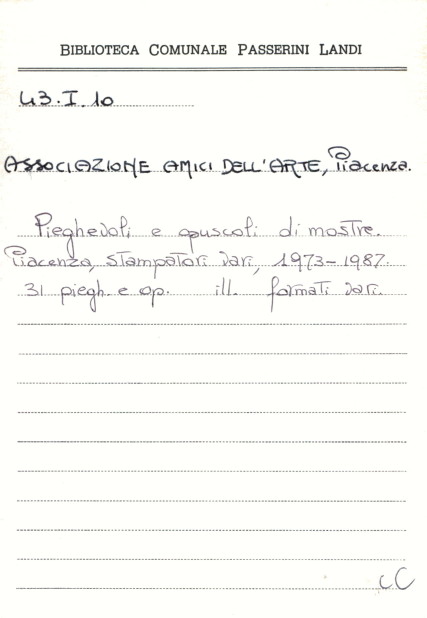 BIBLIOTECA COMUNALE PASSERINI LANDI
43.I.10
ASSOCIAZIONE AMICI DELL'ARTE, Piacenza.
Pieghevoli e opuscoli di mostre.
Piacenza, stampatori vari, 1973-1987.
31 piegh. e op. ill. formati vari.
CC